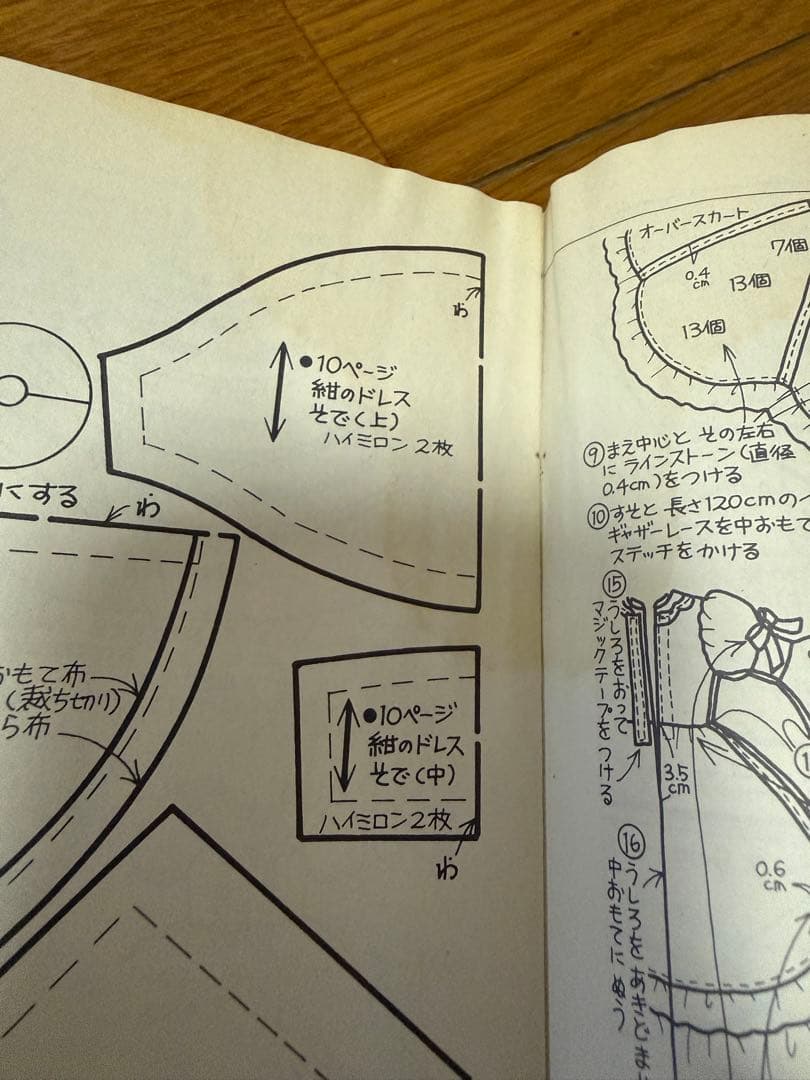 わ
●10ページ
紺のドレス
そで(上)
ハイミロン2枚
にする
わ
おもて布
(裁ち切り)
ら布
●10ページ
紺のドレス
そで(中)
ハイミロン2枚
わ
オーバースカート
0.4
cm
7個
13個
13個
⑨まえ中心と その左右
に ラインストーン(直径
0.4cm)をつける
⑩すそと 長さ120cmの
ギャザーレースを中おもて
ステッチをかける
⑮
うしろをおって
マジックテープをつける
3.5
cm
⑯
うしろを あきどま
中おもてに ぬう
0.6
cm